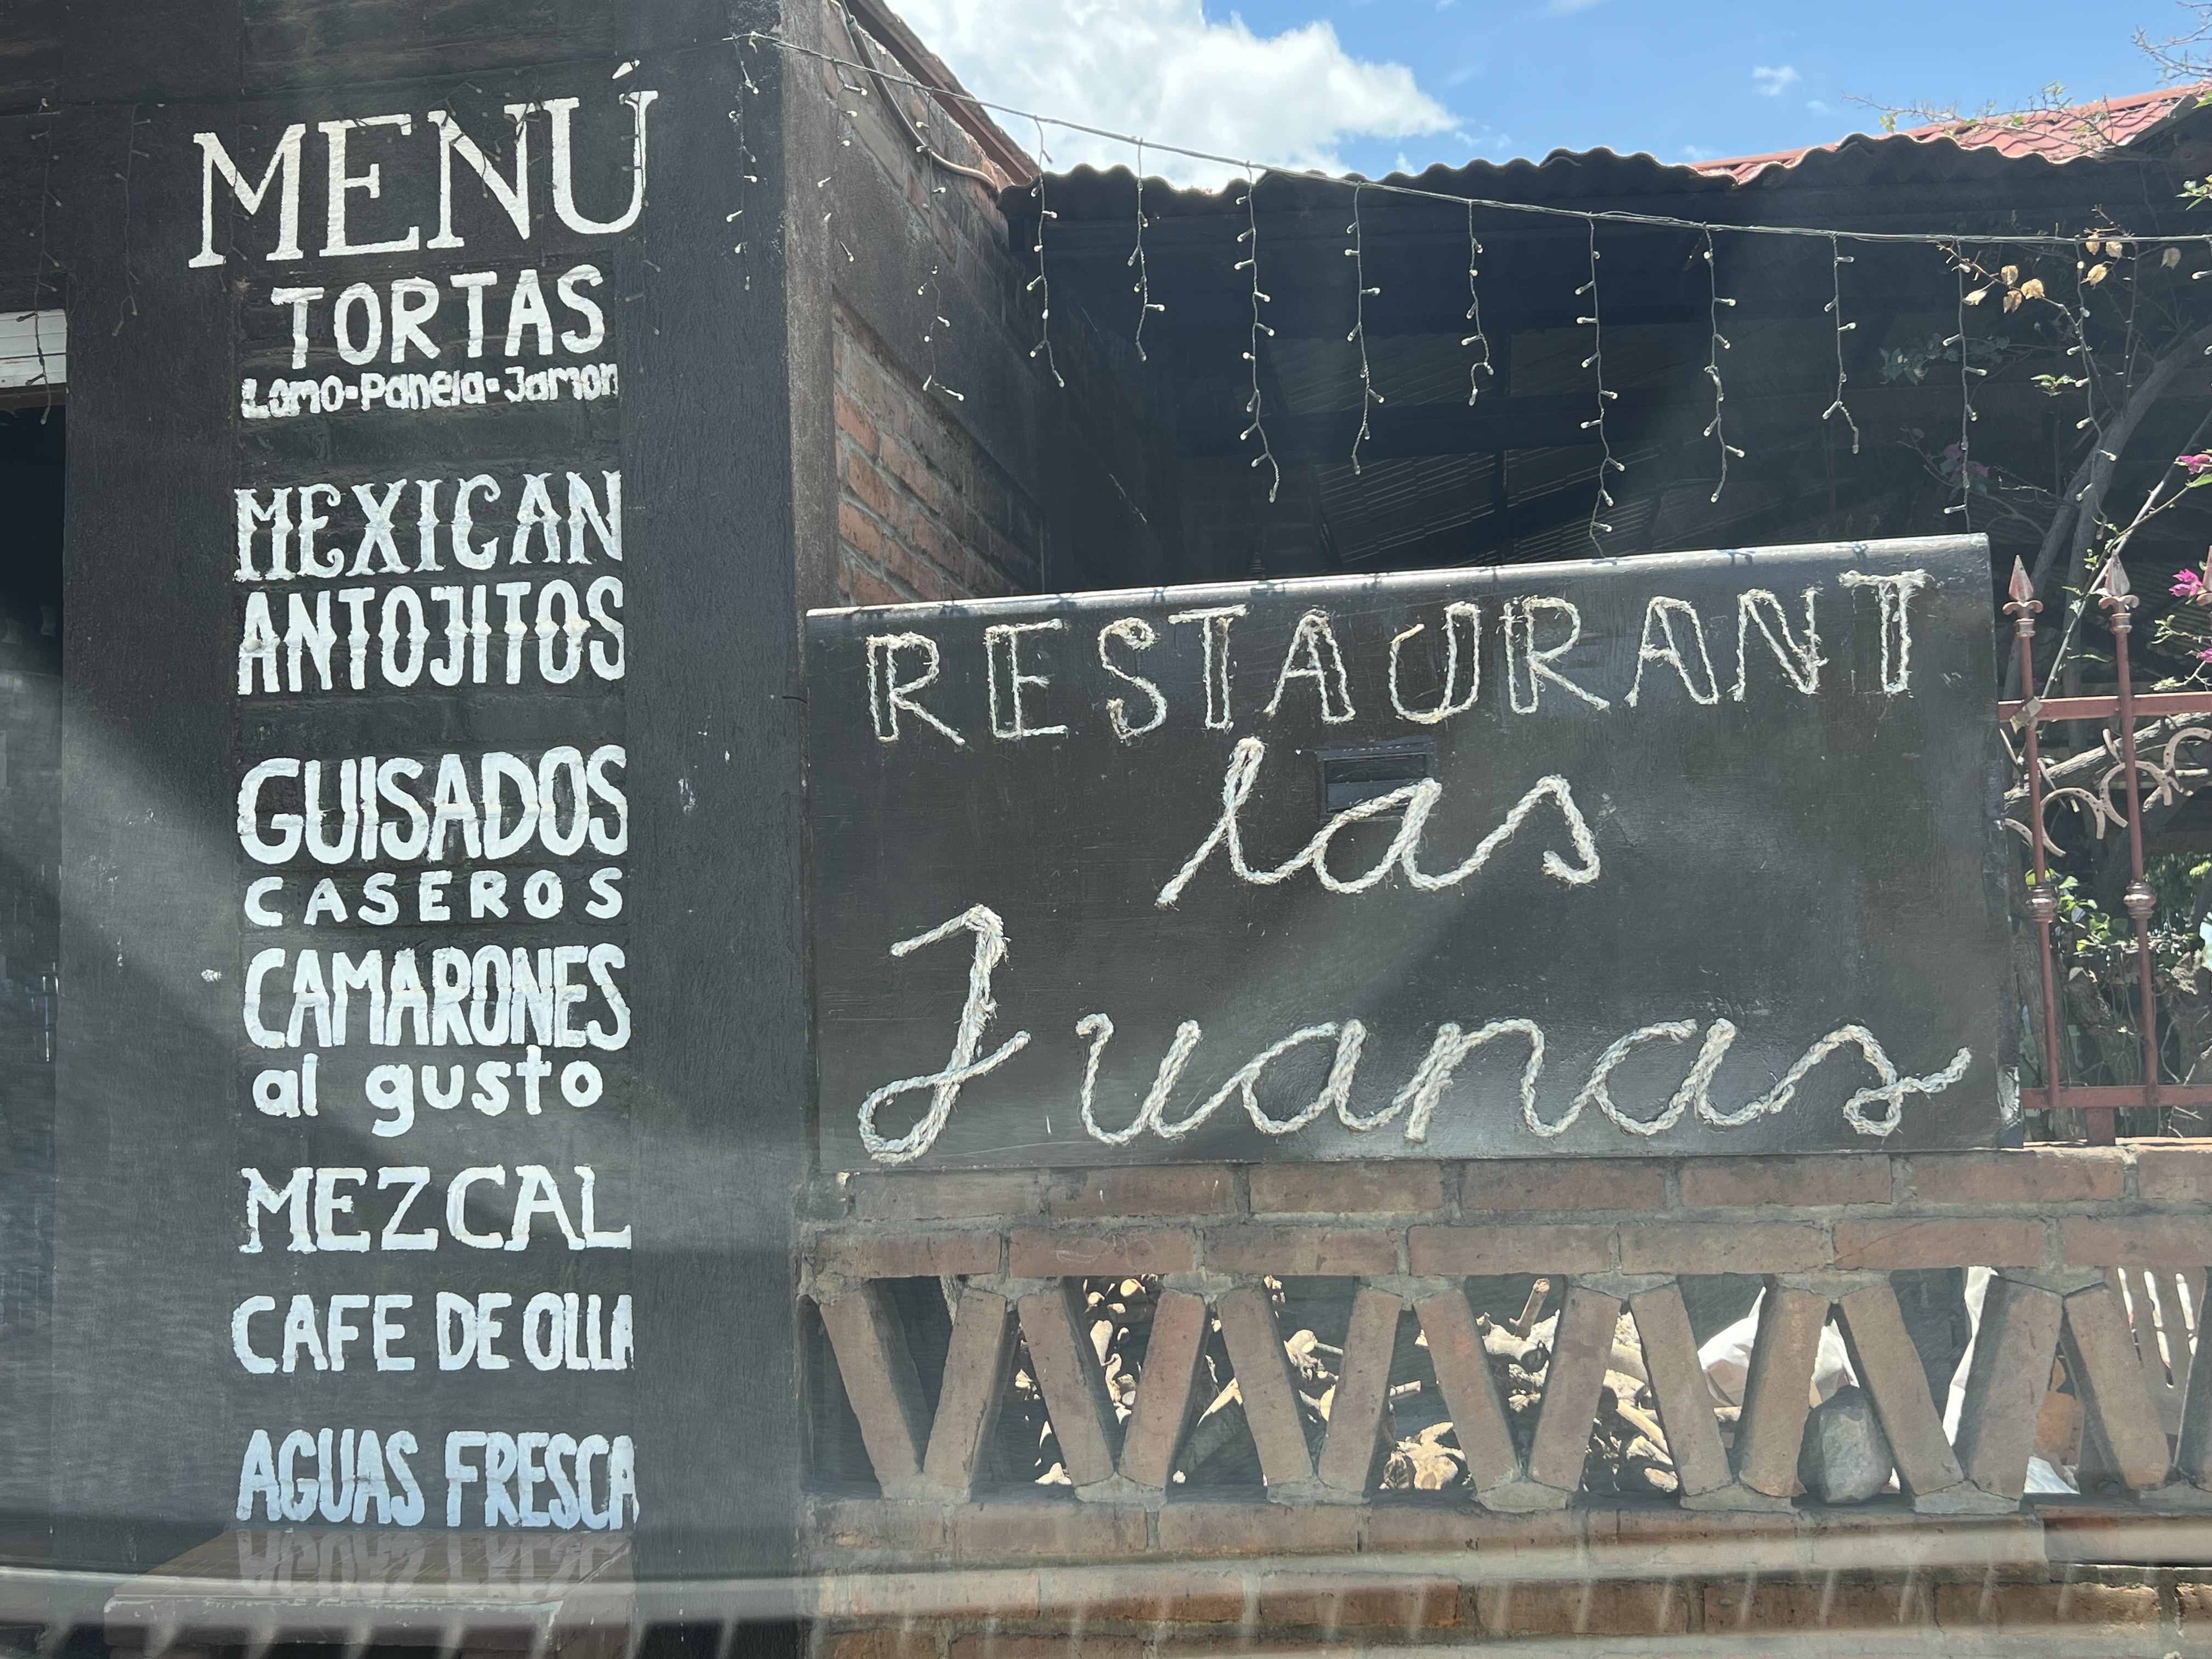 MENÚ
TORTAS
Lomo-Panela-Jamon
MEXICAN
ANTOJITOS
GUISADOS
CASEROS
CAMARONES
al gusto
MEZCAL
CAFE DE OLLA
AGUAS FRESCA
RESTAURANT
las
Juanas